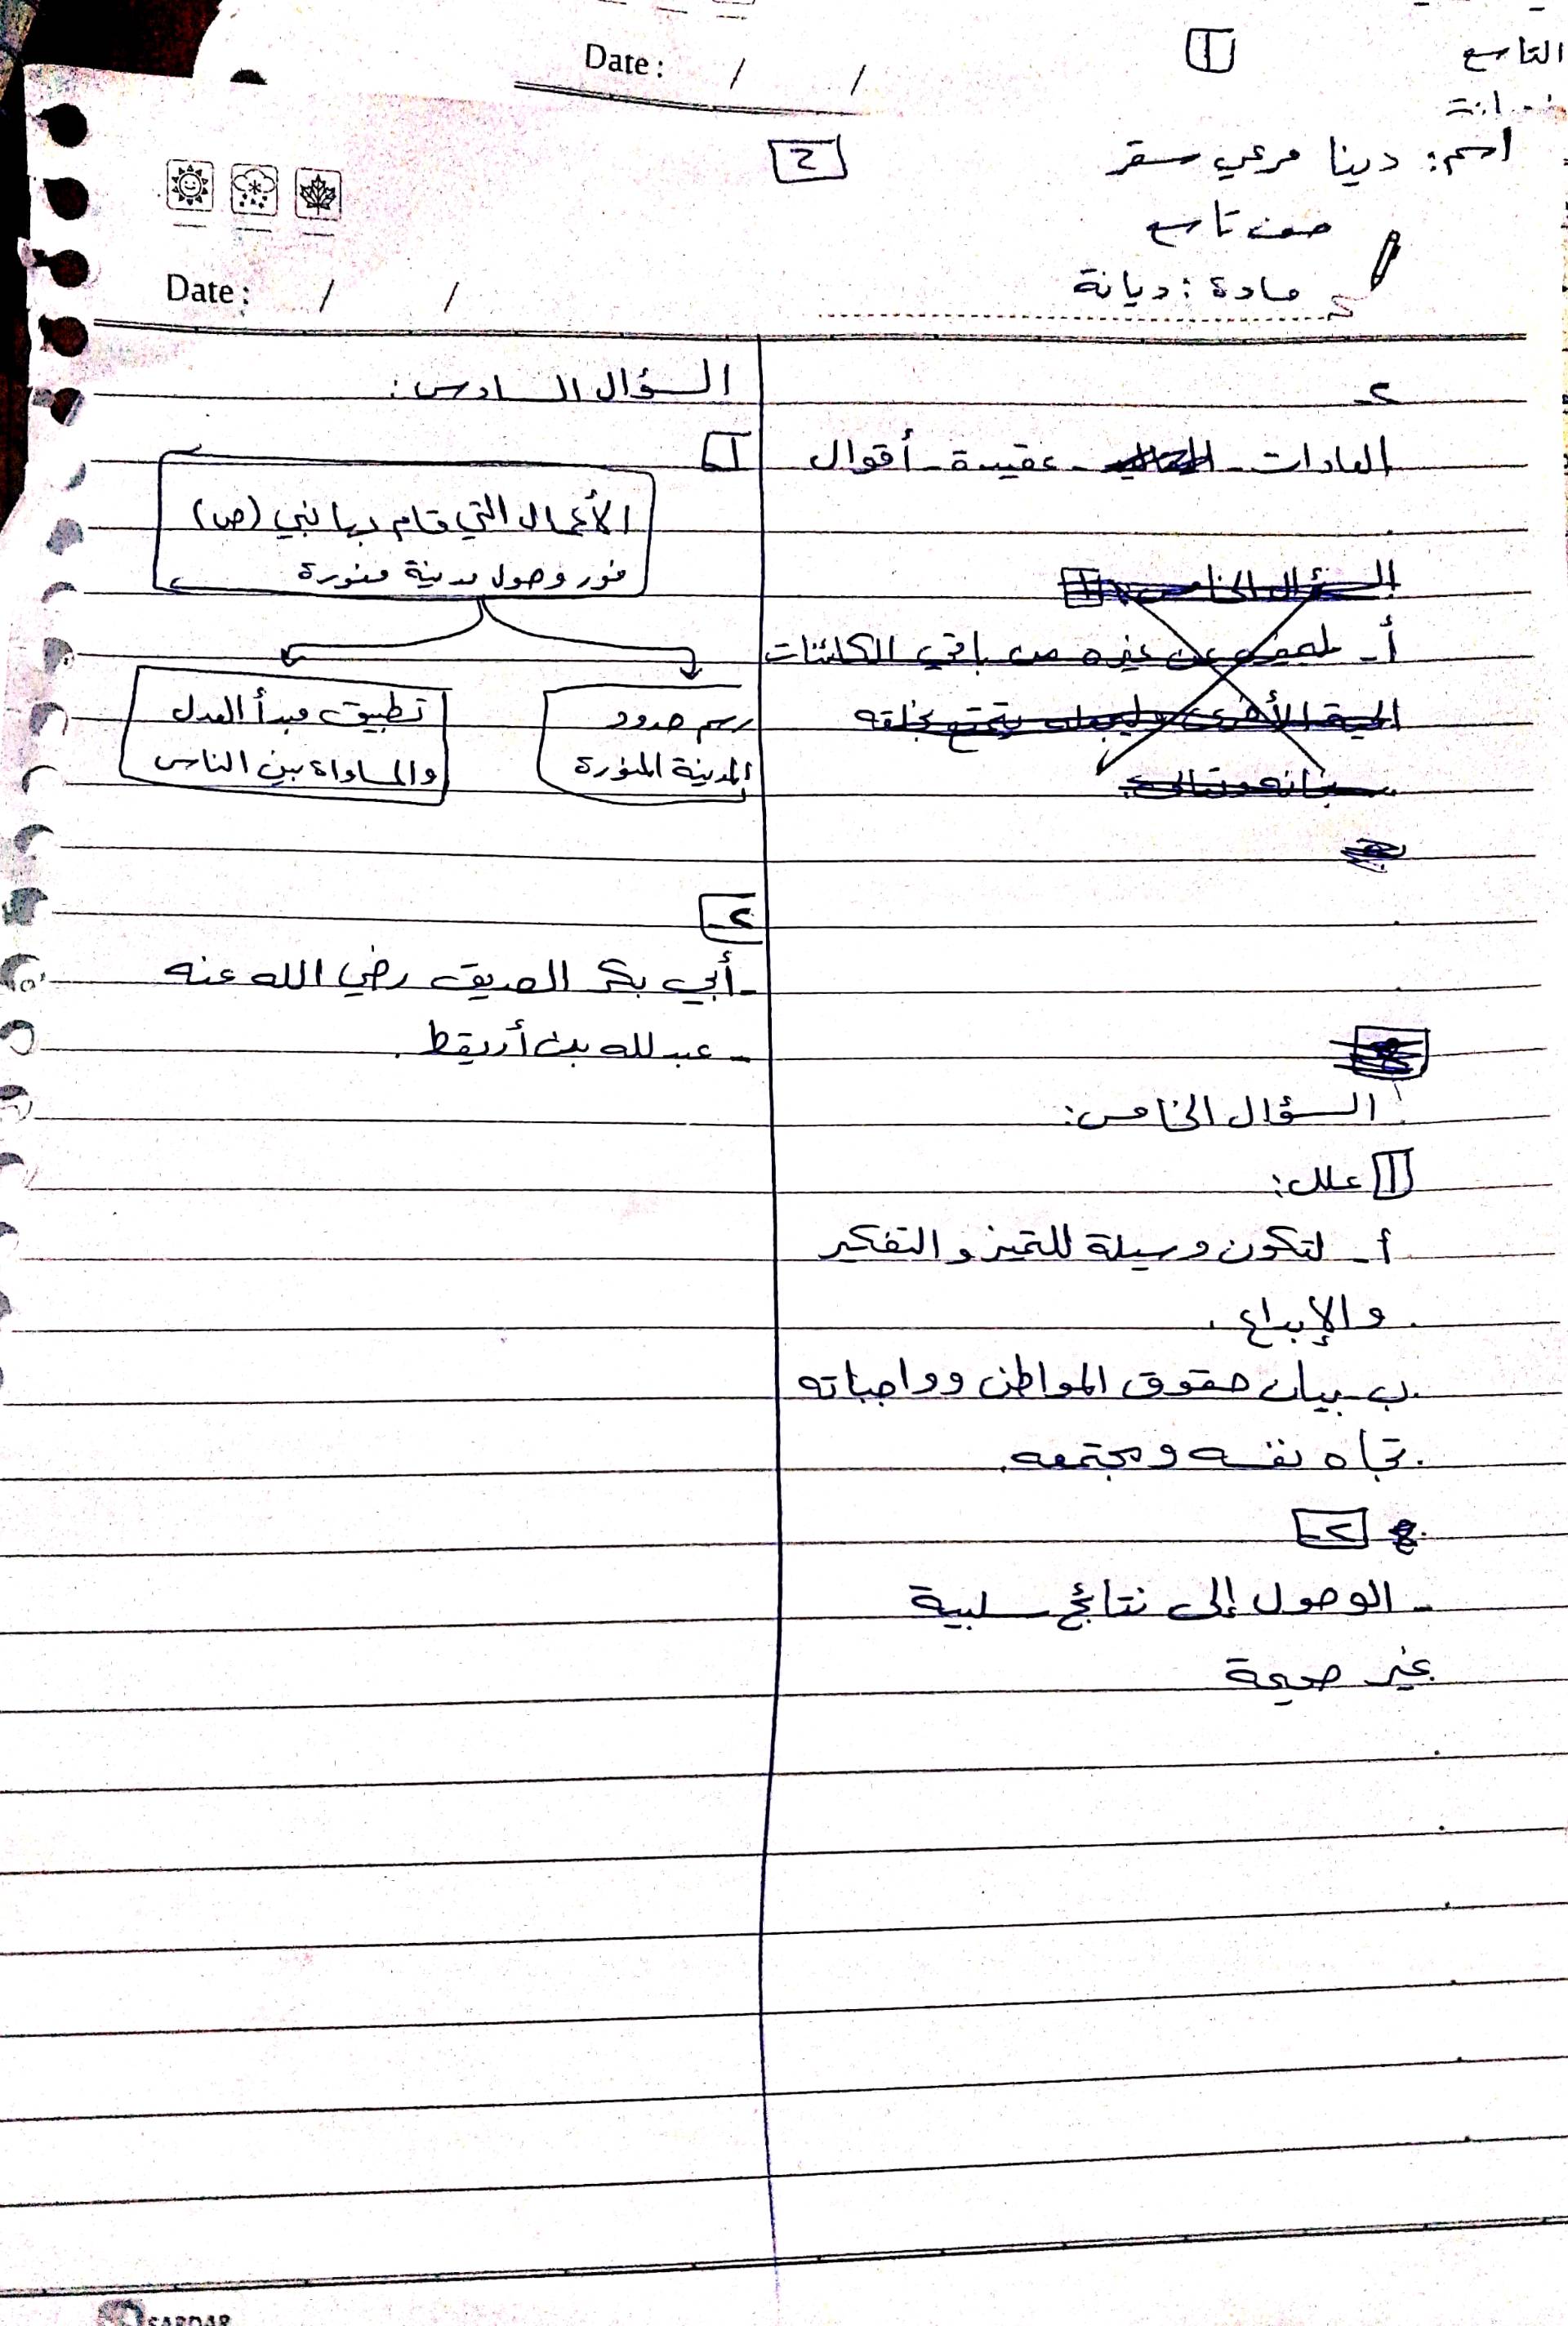 Date: / /
1
التاسع
اسم: دينا مرعي سقر
2
صف تاسع
مادة: ديانة
Date: / /
٢-
العادات - عقيدة - أقوال
السؤال الخامس: 1
أ- لميزه عن غيره من باقي الكائنات
الحية الأخرى وليجعله يتمتع بخلقه
سبحانه وتعالى.
السؤال الخامس:
1 علل:
أ- لتكون وسيلة للتميز والتفكير
والإبداع.
ب- بيان حقوق المواطن وواجباته
تجاه نفسه ومجتمعه.
٢-
- الوصول إلى نتائج سلبية
غير صحيحة
السؤال السادس:
1
الأعمال التي قام بها نبي (ص)
فور وصول مدينة منورة
رسم حدود
المدينة المنورة
تطبيق مبدأ العدل
والمساواة بين الناس
٢-
- أبي بكر الصديق رضي الله عنه
- عبدلله بن أريقط.
SARDAR